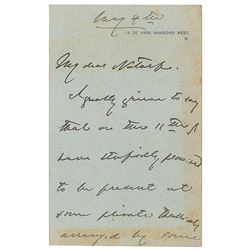 May 4th
13, DE VERE MANSIONS WEST,
W.
My dear
I greatly grieve to say
that on the 11th I
have stupidly promised
to be present at
some private theatricals
arranged by some